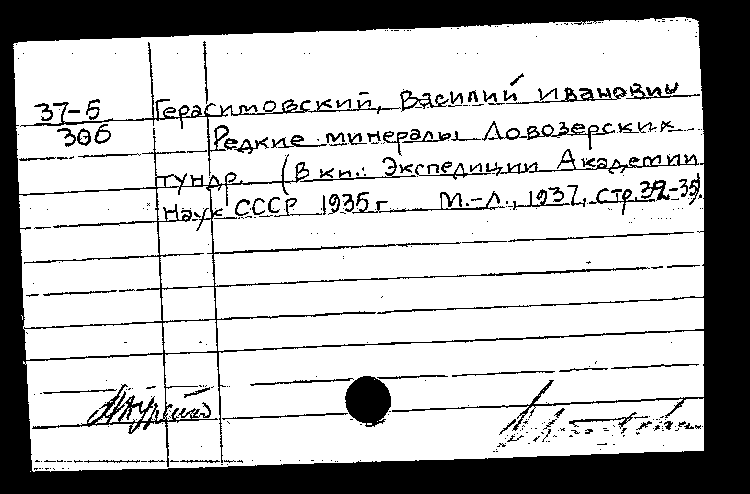 37-5 Герасимовский, Василий Иванович
306 Редкие минералы Ловозерских
тундр. (В кн.: Экспедиции Академии
Наук СССР 1935 г. М.-Л., 1937, стр. 32-35).